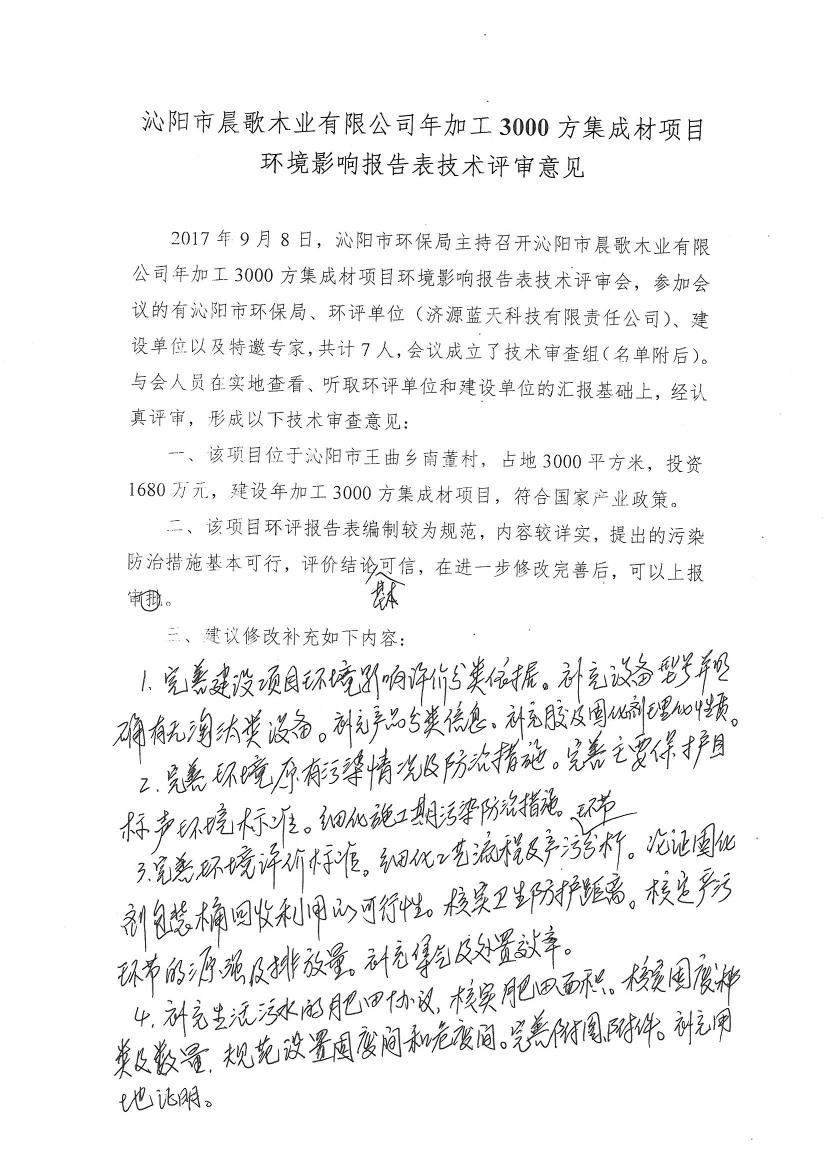 沁阳市晨歌木业有限公司年加工 3000 方集成材项目
环境影响报告表技术评审意见
2017 年 9 月 8 日，沁阳市环保局主持召开沁阳市晨歌木业有限
公司年加工 3000 方集成材项目环境影响报告表技术评审会，参加会
议的有沁阳市环保局、环评单位（济源蓝天科技有限责任公司）、建
设单位以及特邀专家，共计 7 人，会议成立了技术审查组（名单附后）。
与会人员在实地查看、听取环评单位和建设单位的汇报基础上，经认
真评审，形成以下技术审查意见：
一、该项目位于沁阳市王曲乡南董村，占地 3000 平方米，投资
1680 万元，建设年加工 3000 方集成材项目，符合国家产业政策。
二、该项目环评报告表编制较为规范，内容较详实，提出的污染
防治措施基本可行，评价结论可信，在进一步修改完善后，可以上报
基本
审批。
三、建议修改补充如下内容：
1. 完善建设项目环境影响评价分类依据。补充设备型号并明
确有无淘汰类设备。补充产品分类信息。补充胶及固化剂理化性质。
2. 完善环境原有污染情况及防治措施。完善主要保护目
标声环境标准。细化施工期污染防治措施。
环节
3. 完善环境评价标准。细化工艺流程及产污分析。论证固化
剂包装桶回收利用的可行性。核实卫生防护距离。核定产污
环节的源强及排放量。补充集气及处置效率。
4. 补充生活污水的肥田协议，核实肥田面积。核实固废种
类及数量，规范设置固废间和危废间。完善附图附件。补充用
地证明。